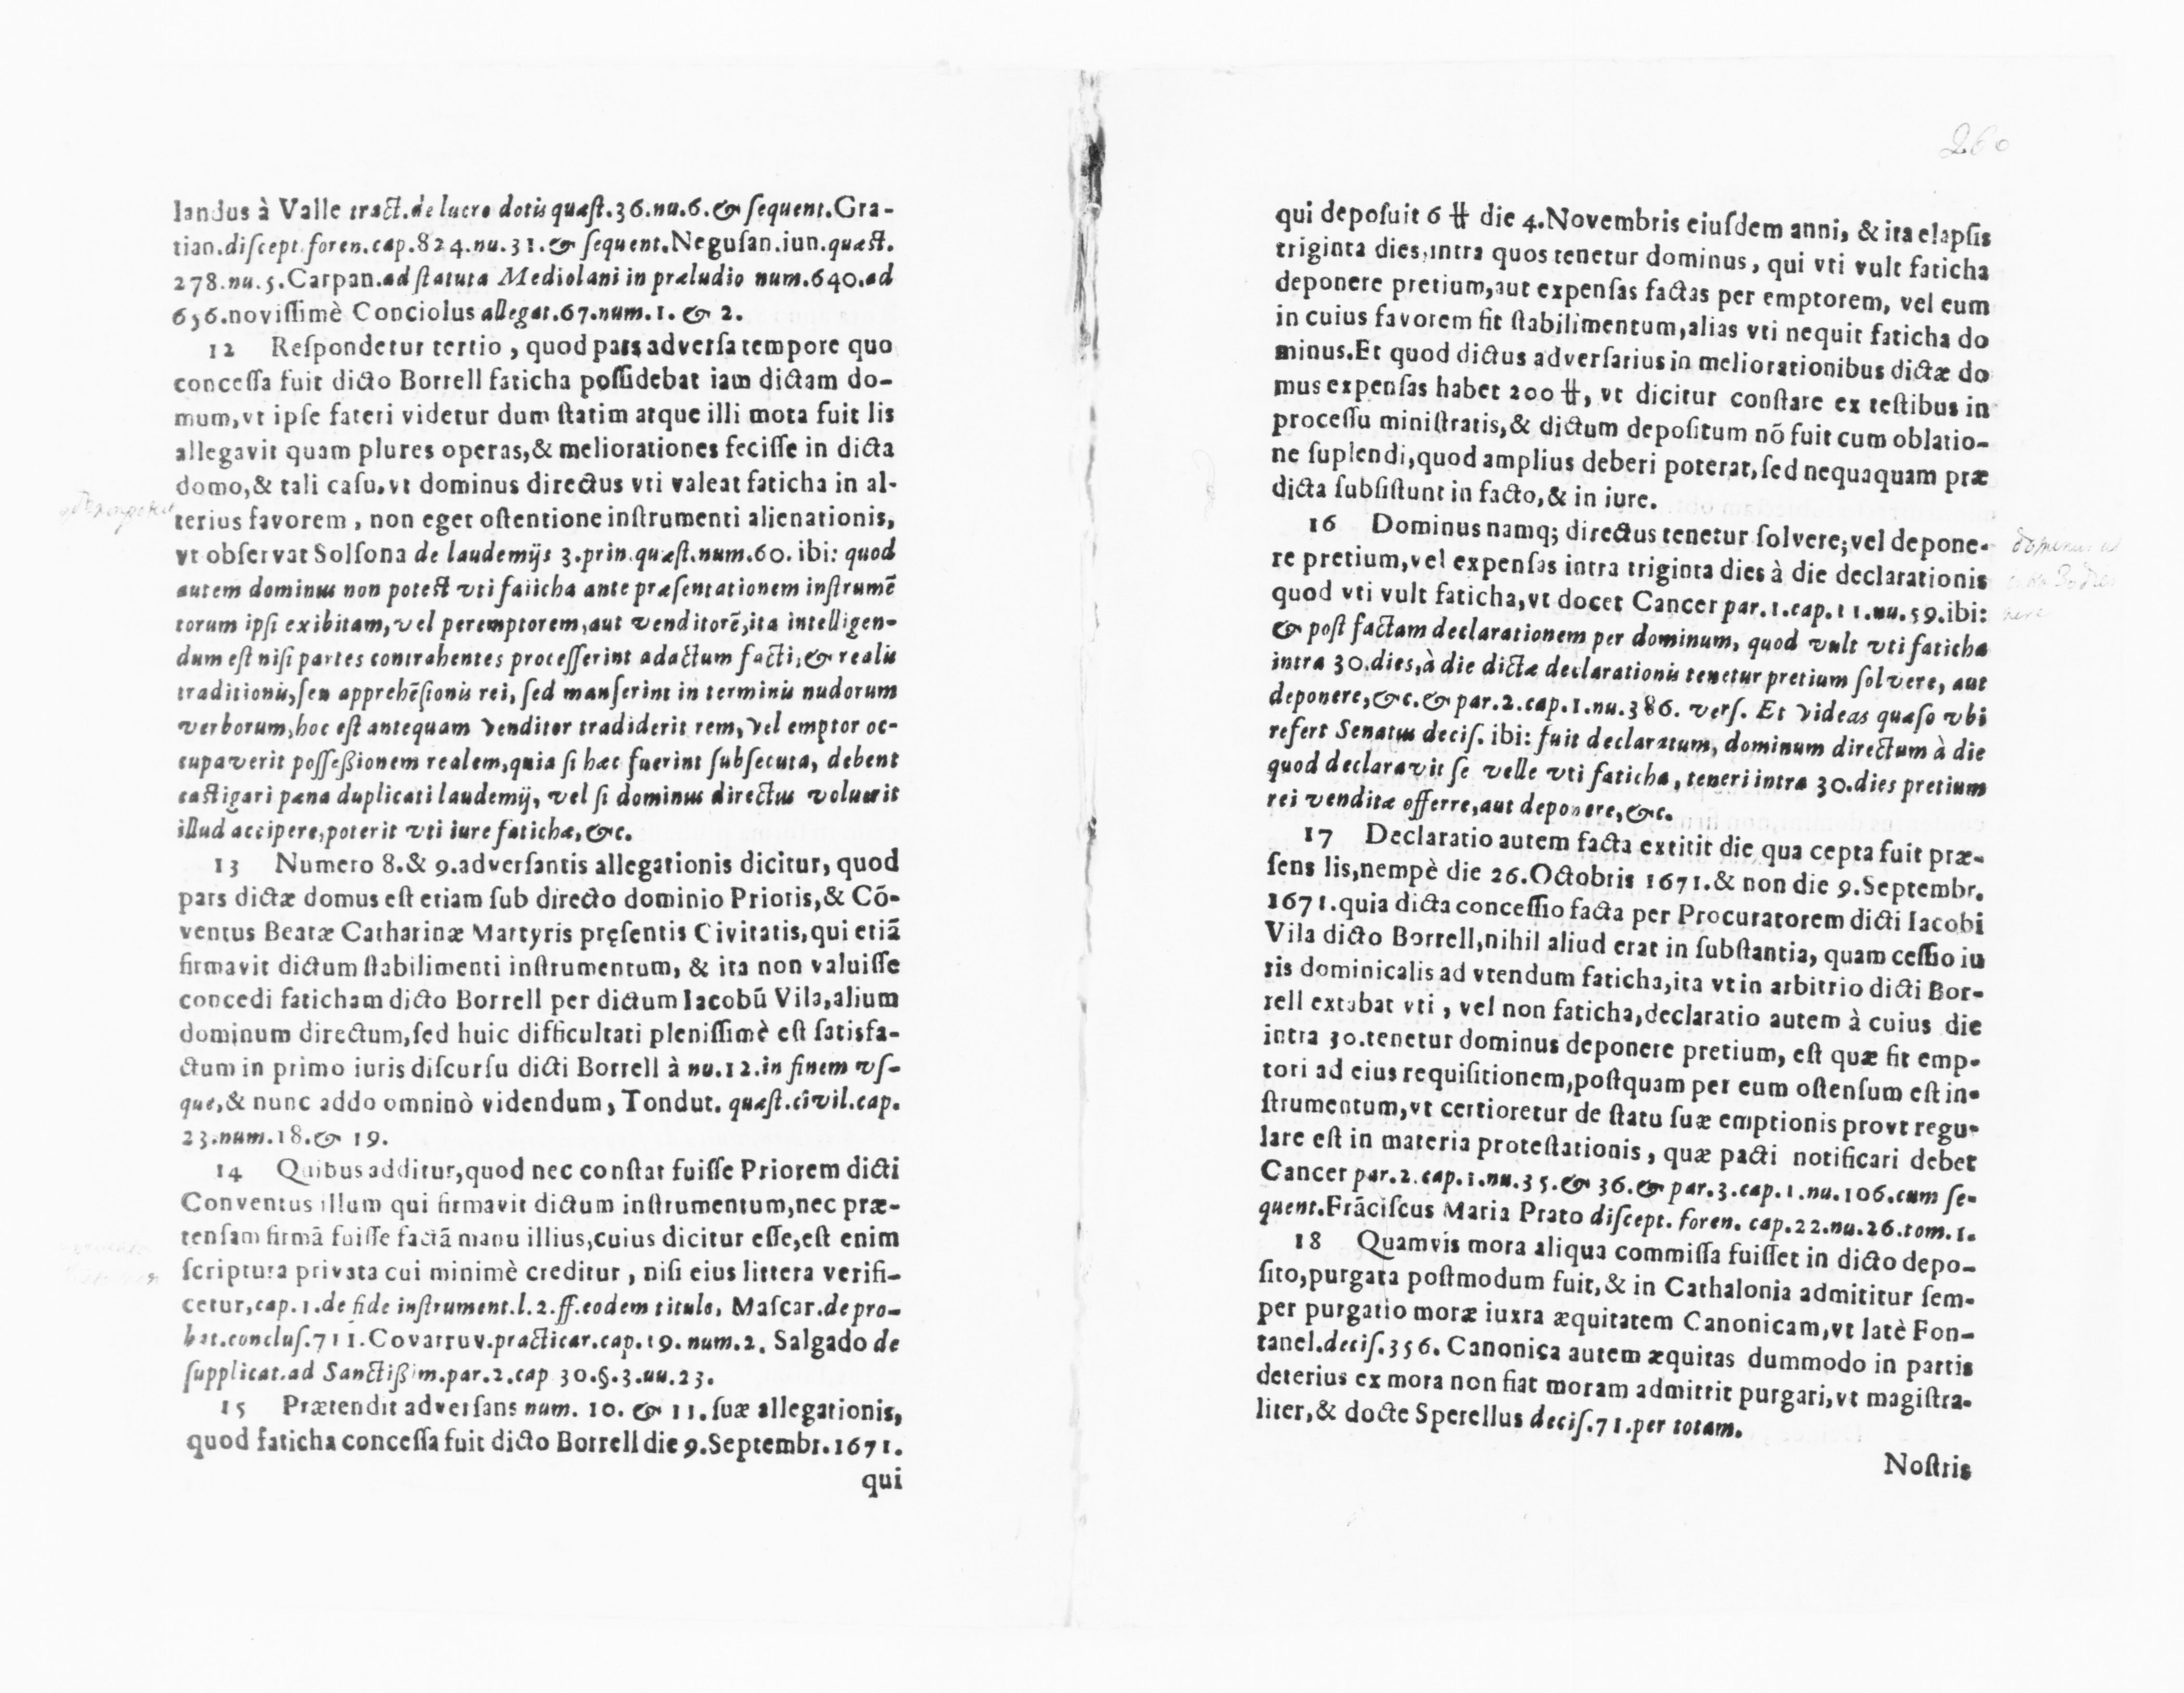 landus à Valle tract.de lucro dotis quæſt.36.nu.6.& ſequent.Gra-
tian.diſcept.foren.cap.824.nu.31.& ſequent.Neguſan.iun.quæst.
278.nu.5.Carpan.ad ſtatuta Mediolani in præludio num.640.ad
656.noviſſimè Conciolus allegat.67.num.1. & 2.
12 Reſpondetur tertio, quod pars adverſa tempore quo
conceſſa fuit dicto Borrell faticha poſſidebat iam dictam do-
mum,vt ipſe fateri videtur dum ſtatim atque illi mota fuit lis
allegavit quam plures operas,& meliorationes feciſſe in dicta
domo,& tali caſu,vt dominus directus vti valeat faticha in al-
terius favorem, non eget oſtentione inſtrumenti alienationis,
vt obſervat Solſona de laudemijs 3.prin.quæſt.num.60. ibi: quod
autem dominus non potest vti faiicha ante præſentationem inſtrumē
torum ipſi exibitam,vel peremptorem,aut venditorē,ita intelligen-
dum eſt niſi partes contrahentes proceſſerint ad actum facti,& realis
traditionis,ſeu apprehēſionis rei, ſed manſerint in terminis nudorum
verborum,hoc eſt antequam venditor tradiderit rem, vel emptor oc-
cupaverit poſſeßionem realem,quia ſi hæc fuerint ſubſecuta, debent
caſtigari pæna duplicati laudemij, vel ſi dominus directus voluerit
illud accipere,poterit vti iure fatichæ,&c.
13 Numero 8.& 9.adverſantis allegationis dicitur, quod
pars dictæ domus eſt etiam ſub directo dominio Prioris,& Cō-
ventus Beatæ Catharinæ Martyris pręſentis Civitatis,qui etiā
firmavit dictum ſtabilimenti inſtrumentum, & ita non valuiſſe
concedi faticham dicto Borrell per dictum Iacobū Vila,alium
dominum directum,ſed huic difficultati pleniſſimè eſt ſatisfa-
ctum in primo iuris diſcurſu dicti Borrell à nu.12.in finem vſ-
que,& nunc addo omninò videndum, Tondut. quæſt.civil.cap.
23.num.18.& 19.
14 Quibus additur,quod nec conſtat fuiſſe Priorem dicti
Conventus illum qui firmavit dictum inſtrumentum,nec præ-
tenſam firmā fuiſſe factā manu illius,cuius dicitur eſſe,eſt enim
ſcriptura privata cui minimè creditur, niſi eius littera verifi-
cetur,cap.1.de fide inſtrument.l.2.ff.eodem titulo, Maſcar.de pro-
bat.concluſ.711.Covarruv.practicar.cap.19.num.2. Salgado de
ſupplicat.ad Sanctißim.par.2.cap 30.§.3.uu.23.
15 Prætendit adverſans num. 10. & 11. ſuæ allegationis,
quod faticha conceſſa fuit dicto Borrell die 9.Septembr.1671.
qui
260
qui depoſuit 6 ₶ die 4.Novembris eiuſdem anni, & ita elapſis
triginta dies,intra quos tenetur dominus, qui vti vult faticha
deponere pretium,aut expenſas factas per emptorem, vel eum
in cuius favorem fit ſtabilimentum,alias vti nequit faticha do
minus.Et quod dictus adverſarius in meliorationibus dictæ do
mus expenſas habet 200 ₶, vt dicitur conſtare ex teſtibus in
proceſſu miniſtratis,& dictum depoſitum nō fuit cum oblatio-
ne ſuplendi,quod amplius deberi poterat,ſed nequaquam præ
dicta ſubſiſtunt in facto,& in iure.
16 Dominus namq; directus tenetur ſolvere;vel depone-
re pretium,vel expenſas intra triginta dies à die declarationis
quod vti vult faticha,vt docet Cancer par.1.cap.11.nu.59.ibi:
& poſt factam declarationem per dominum, quod vult vti faticha
intra 30.dies,à die dictæ declarationis tenetur pretium ſolvere, aut
deponere,&c.& par.2.cap.1.nu.386. verſ. Et videas quæſo vbi
refert Senatus deciſ. ibi: fuit declaratum, dominum directum à die
quod declaravit ſe velle vti faticha, teneri intra 30.dies pretium
rei venditæ offerre,aut deponere,&c.
17 Declaratio autem facta extitit die qua cepta fuit præ-
ſens lis,nempè die 26.Octobris 1671.& non die 9.Septembr.
1671.quia dicta conceſſio facta per Procuratorem dicti Iacobi
Vila dicto Borrell,nihil aliud erat in ſubſtantia, quam ceſſio iu
ris dominicalis ad vtendum faticha,ita vt in arbitrio dicti Bor-
rell extabat vti, vel non faticha,declaratio autem à cuius die
intra 30.tenetur dominus deponere pretium, eſt quæ fit emp-
tori ad eius requiſitionem,poſtquam per eum oſtenſum eſt in-
ſtrumentum,vt certioretur de ſtatu ſuæ emptionis provt regu-
lare eſt in materia proteſtationis, quæ pacti notificari debet
Cancer par.2.cap.1.nu.35.& 36.& par.3.cap.1.nu.106.cum ſe-
quent.Frāciſcus Maria Prato diſcept. foren. cap.22.nu.26.tom.1.
18 Quamvis mora aliqua commiſſa fuiſſet in dicto depo-
ſito,purgata poſtmodum fuit,& in Cathalonia admititur ſem-
per purgatio moræ iuxta æquitatem Canonicam,vt latè Fon-
tanel.deciſ.356. Canonica autem æquitas dummodo in partis
deterius ex mora non fiat moram admittit purgari,vt magiſtra-
liter,& docte Sperellus deciſ.71.per totam.
Noſtris